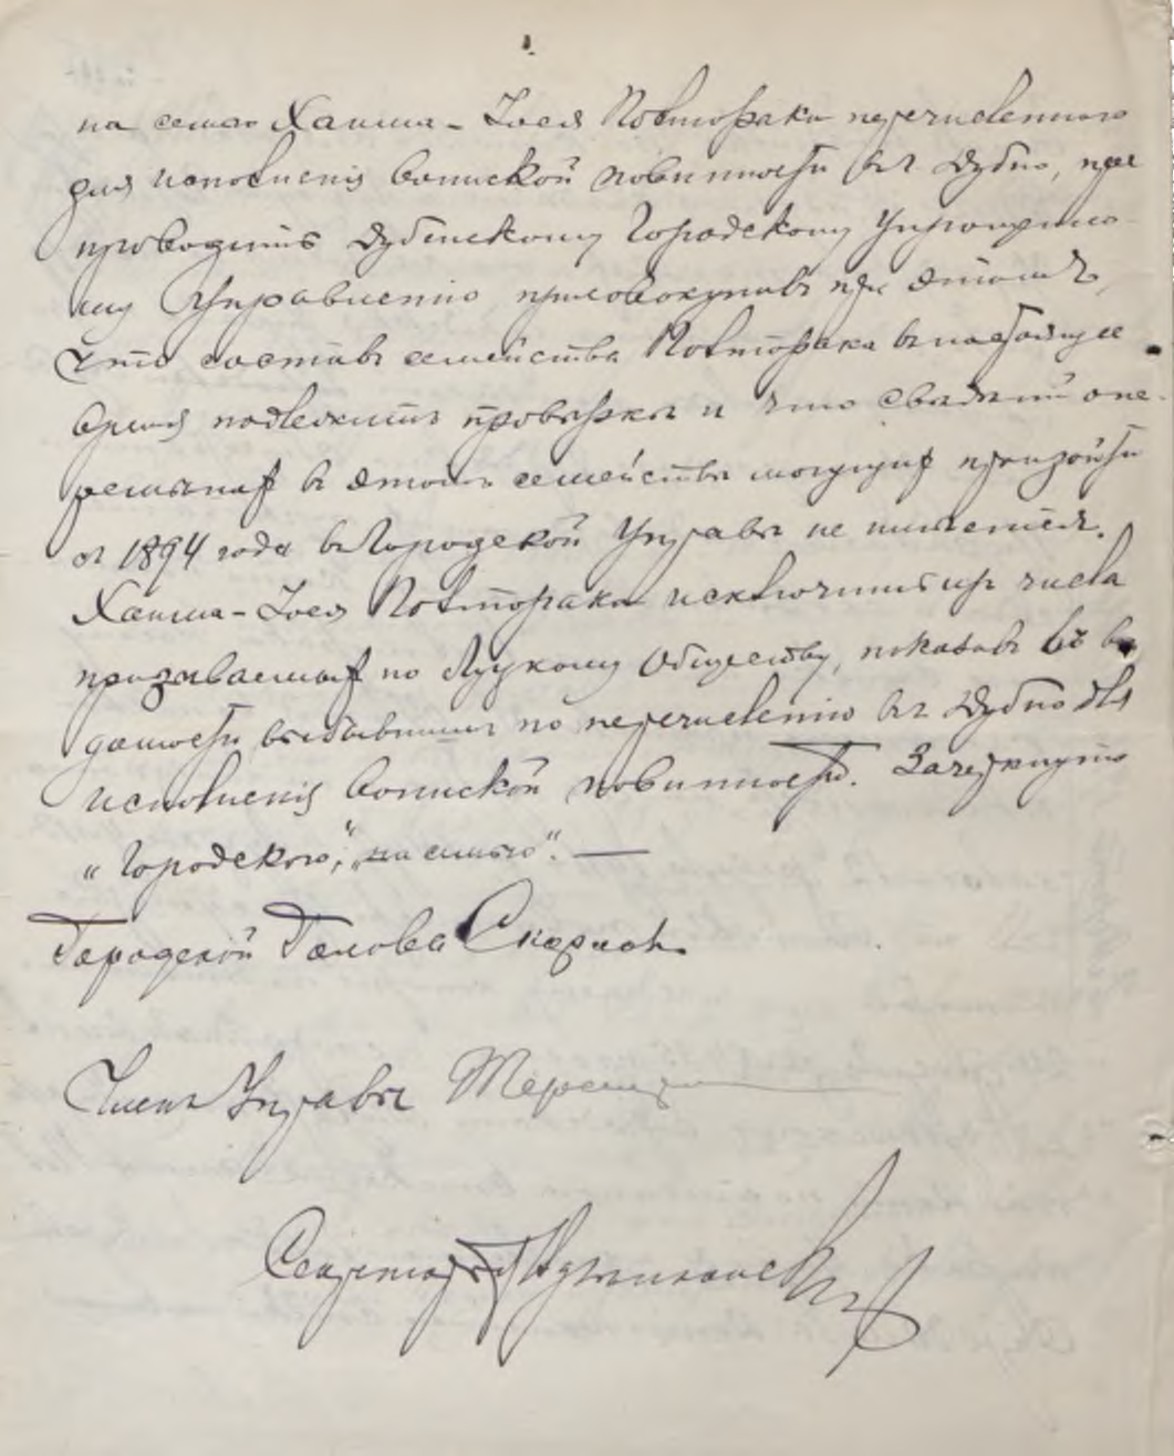 на семью Хаима-Іося Повторака перечисленнаго
для исполненія воинской повинности въ Дубно, пре
проводить Дубенскому Городскому Упрощенно-
му Управленію, присовокупивъ при этомъ,
что составъ семейства Повторака въ настоящее
время подлежитъ провѣркѣ и что свѣдѣній о пе-
ремѣнахъ въ этомъ семействѣ могущихъ произойти
съ 1894 года въ Городской Управѣ не имѣется.
Хаима-Іося Повторака исключить изъ числа
призываемыхъ по Луцкому Обществу, показавъ въ вѣ
домости выбывшимъ по перечисленію въ Дубно для
исполненія воинской повинности. Зачеркнуто
"Городского," "на семью". —
Городской Голова
Членъ Управы
Секретарь